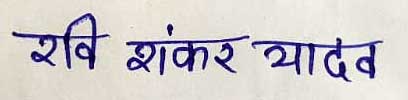 रवि शंकर यादव